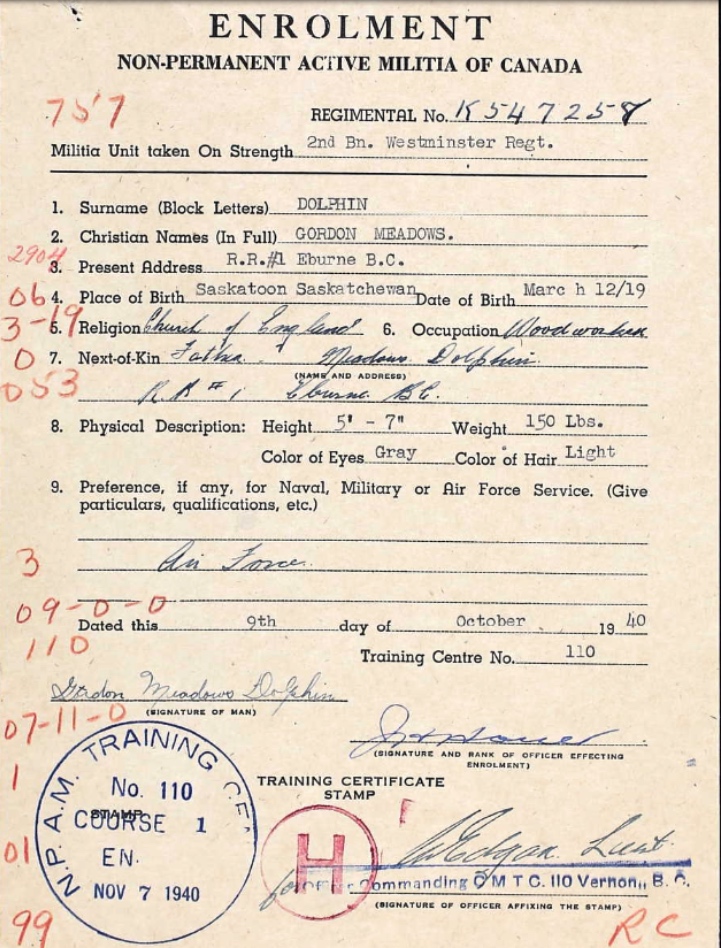 ENROLMENT
NON-PERMANENT ACTIVE MILITIA OF CANADA
757
REGIMENTAL No. K547257
Militia Unit taken On Strength 2nd Bn. Westminster Regt.
1. Surname (Block Letters) DOLPHIN
2. Christian Names (In Full) GORDON MEADOWS.
2904
3. Present Address R.R.#1 Eburne B.C.
06
4. Place of Birth Saskatoon Saskatchewan Date of Birth Marc h 12/19
3-19
5. Religion Church of England 6. Occupation Woodworker
0
7. Next-of-Kin Father. Meadows Dolphin
(NAME AND ADDRESS)
053
R.R #1 Eburne B.C.
8. Physical Description: Height 5' - 7" Weight 150 Lbs.
Color of Eyes Gray Color of Hair Light
9. Preference, if any, for Naval, Military or Air Force Service. (Give
particulars, qualifications, etc.)
3
Air Force
09-0-0
Dated this 9th day of October 19 40
110
Training Centre No. 110
Gordon Meadows Dolphin
(SIGNATURE OF MAN)
07-11-0
(SIGNATURE AND RANK OF OFFICER EFFECTING
ENROLMENT)
1
TRAINING CERTIFICATE
STAMP
N.P.A.M. TRAINING CE
No. 110
STAMP
COURSE 1
EN.
NOV 7 1940
H
01
Edgar Lieut
for Officer Commanding C M T C. 110 Vernon, B. C.
(SIGNATURE OF OFFICER AFFIXING THE STAMP)
99
RC